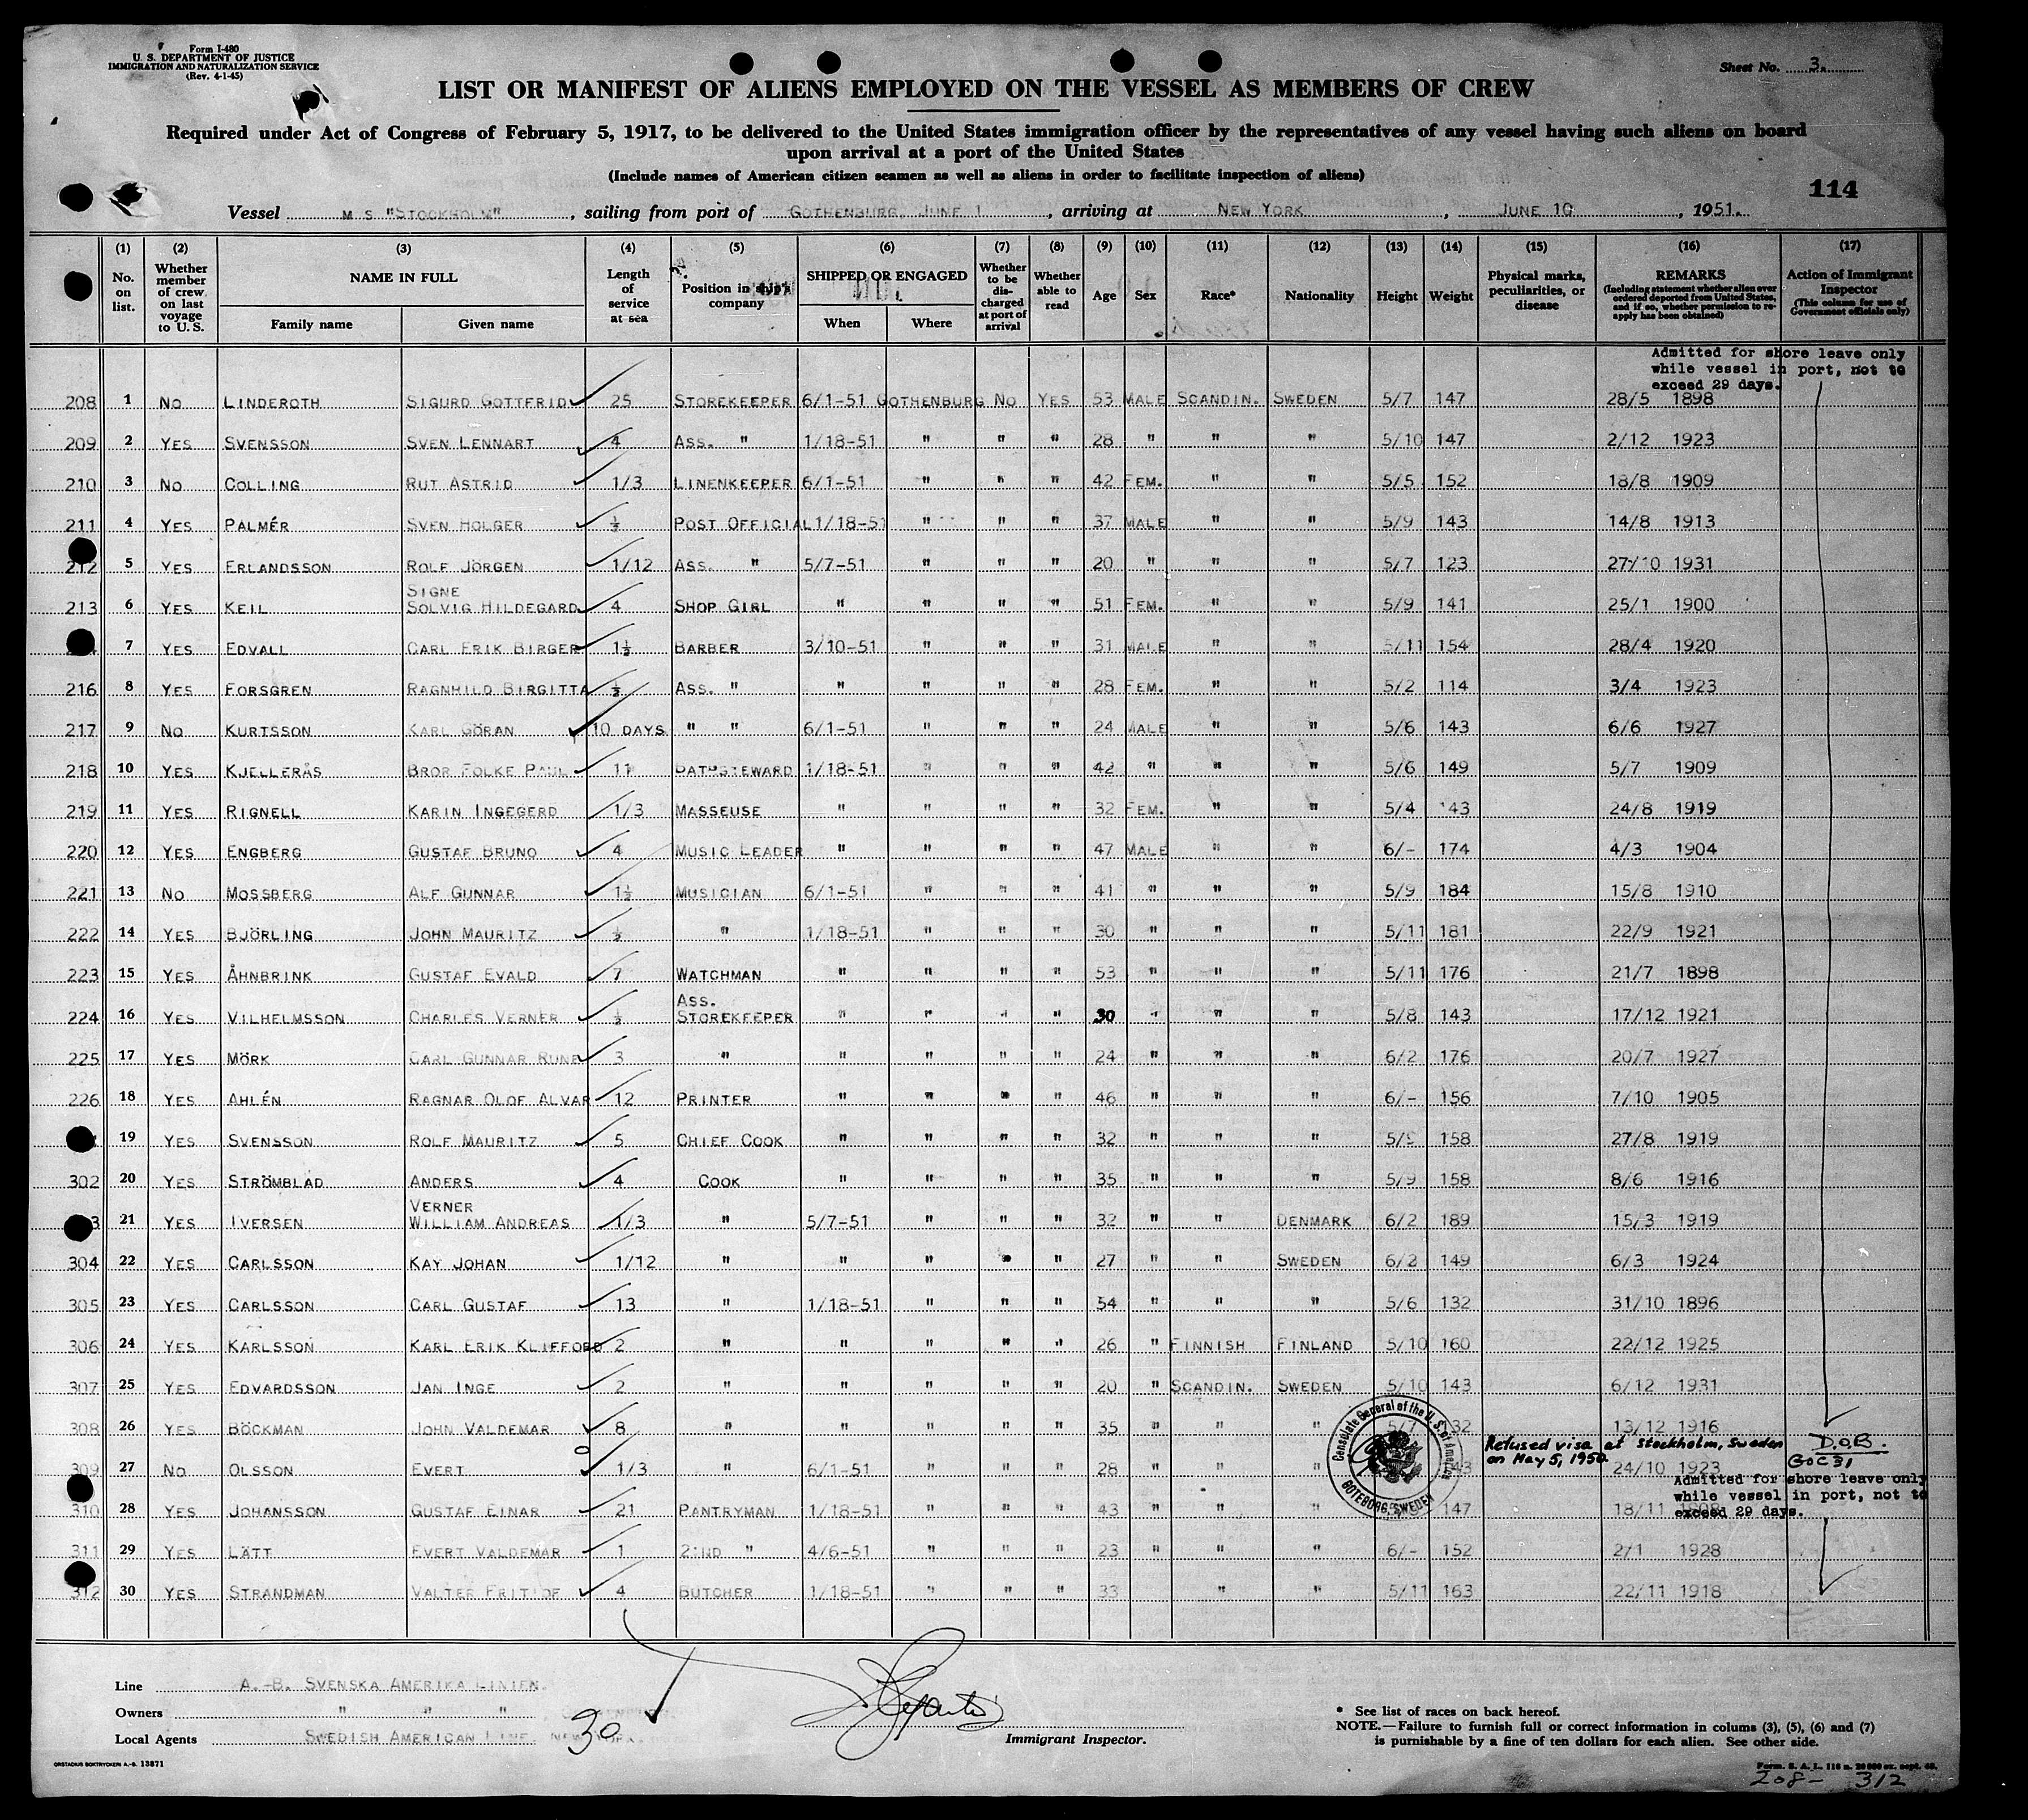 Form I-480
U. S. DEPARTMENT OF JUSTICE
IMMIGRATION AND NATURALIZATION SERVICE
(Rev. 4-1-45)
Sheet No. 3.
LIST OR MANIFEST OF ALIENS EMPLOYED ON THE VESSEL AS MEMBERS OF CREW
Required under Act of Congress of February 5, 1917, to be delivered to the United States immigration officer by the representatives of any vessel having such aliens on board
upon arrival at a port of the United States
(Include names of American citizen seamen as well as aliens in order to facilitate inspection of aliens)
114
Vessel M S "STOCKHOLM", sailing from port of GOTHENBURG, JUNE 1, arriving at NEW YORK, JUNE 10, 1951.
(1) (2) (3) (4) (5) (6) (7) (8) (9) (10) (11) (12) (13) (14) (15) (16) (17)
No. on list. Whether member of crew on last voyage to U. S. NAME IN FULL Family name Given name Length of service at sea Position in ship's company SHIPPED OR ENGAGED When Where Whether to be discharged at port of arrival Whether able to read Age Sex Race* Nationality Height Weight Physical marks, peculiarities, or disease REMARKS (Including statement whether alien ever ordered deported from United States, and if so, whether permission to re-apply has been obtained) Action of Immigrant Inspector (This column for use of Government officials only)
Admitted for shore leave only
while vessel in port, not to
exceed 29 days.
208 1 NO LINDEROTH SIGURD GOTTFRID 25 STOREKEEPER 6/1-51 GOTHENBURG NO YES 53 MALE SCANDIN. SWEDEN 5/7 147 28/5 1898
209 2 YES SVENSSON SVEN LENNART 4 ASS. " 1/18-51 " " " 28 " " " 5/10 147 2/12 1923
210 3 NO COLLING RUT ASTRID 1/3 LINENKEEPER 6/1-51 " " " 42 FEM. " " 5/5 152 18/8 1909
211 4 YES PALMÉR SVEN HOLGER POST OFFICIAL 1/18-51 " " " 37 MALE " " 5/9 143 14/8 1913
212 5 YES ERLANDSSON ROLF JÖRGEN 1/12 ASS. " 5/7-51 " " " 20 " " " 5/7 123 27/10 1931
213 6 YES KEIL SIGNE SOLVIG HILDEGARD 4 SHOP GIRL " " " " 51 FEM. " " 5/9 141 25/1 1900
7 YES EDVALL CARL ERIK BIRGER 1½ BARBER 3/10-51 " " " 31 MALE " " 5/11 154 28/4 1920
216 8 YES FORSGREN RAGNHILD BIRGITTA ½ ASS. " " " " " 28 FEM. " " 5/2 114 3/4 1923
217 9 NO KURTSSON KARL GÖRAN 10 DAYS " " 6/1-51 " " " 24 MALE " " 5/6 143 6/6 1927
218 10 YES KJELLERÅS BROR FOLKE PAUL 11 BATHSTEWARD 1/18-51 " " " 42 " " " 5/6 149 5/7 1909
219 11 YES RIGNELL KARIN INGEGERD 1/3 MASSEUSE " " " " 32 FEM. " " 5/4 143 24/8 1919
220 12 YES ENGBERG GUSTAF BRUNO 4 MUSIC LEADER " " " " 47 MALE " " 6/- 174 4/3 1904
221 13 NO MOSSBERG ALF GUNNAR 1½ MUSICIAN 6/1-51 " " " 41 " " " 5/9 184 15/8 1910
222 14 YES BJÖRLING JOHN MAURITZ ½ " 1/18-51 " " " 30 " " " 5/11 181 22/9 1921
223 15 YES ÅHNBRINK GUSTAF EVALD 7 WATCHMAN " " " " 53 " " " 5/11 176 21/7 1898
224 16 YES VILHELMSSON CHARLES VERNER ½ ASS. STOREKEEPER " " " " 30 " " " 5/8 143 17/12 1921
225 17 YES MÖRK CARL GUNNAR RUNE 3 " " " " " 24 " " " 6/2 176 20/7 1927
226 18 YES AHLÉN RAGNAR OLOF ALVAR 12 PRINTER " " " " 46 " " " 6/- 156 7/10 1905
19 YES SVENSSON ROLF MAURITZ 5 CHIEF COOK " " " " 32 " " " 5/9 158 27/8 1919
302 20 YES STRÖMBLAD ANDERS 4 COOK " " " " 35 " " " 5/9 158 8/6 1916
3 21 YES IVERSEN VERNER WILLIAM ANDREAS 1/3 " 5/7-51 " " " 32 " " DENMARK 6/2 189 15/3 1919
304 22 YES CARLSSON KAY JOHAN 1/12 " " " " " 27 " " SWEDEN 6/2 149 6/3 1924
305 23 YES CARLSSON CARL GUSTAF 13 " 1/18-51 " " " 54 " " " 5/6 132 31/10 1896
306 24 YES KARLSSON KARL ERIK KLIFFORD 2 " " " " " 26 " FINNISH FINLAND 5/10 160 22/12 1925
307 25 YES EDVARDSSON JAN INGE 2 " " " " " 20 " SCANDIN. SWEDEN 5/10 143 6/12 1931
308 26 YES BÖCKMAN JOHN VALDEMAR 8 " " " " " 35 " " " 5/7 132 13/12 1916
Refused visa at Stockholm, Sweden
on May 5, 1950.
D.O.B.
GOC31
309 27 NO OLSSON EVERT 1/3 " 6/1-51 " " " 28 " " " 143 24/10 1923
Admitted for shore leave only
while vessel in port, not to
exceed 29 days.
310 28 YES JOHANSSON GUSTAF EINAR 21 PANTRYMAN 1/18-51 " " " 43 " " " 147 18/11
311 29 YES LÄTT EVERT VALDEMAR 1 2:ND " 4/6-51 " " " 23 " " " 6/- 152 2/1 1928
312 30 YES STRANDMAN VALTER FRITIOF 4 BUTCHER 1/18-51 " " " 33 " " 5/11 163 22/11 1918
Consulate General of the U. S. of America
GÖTEBORG, SWEDEN
Line A.-B. SVENSKA AMERIKA LINIEN
Owners " " "
Local Agents SWEDISH AMERICAN LINE NEW YORK
30
Immigrant Inspector.
* See list of races on back hereof.
NOTE.—Failure to furnish full or correct information in colums (3), (5), (6) and (7)
is purnishable by a fine of ten dollars for each alien. See other side.
ORSTADIUS BOKTRYCKERI A.-B. 13871
Form. S. A. L. 116 a. 20 000 ex. sept. 48.
208- 312